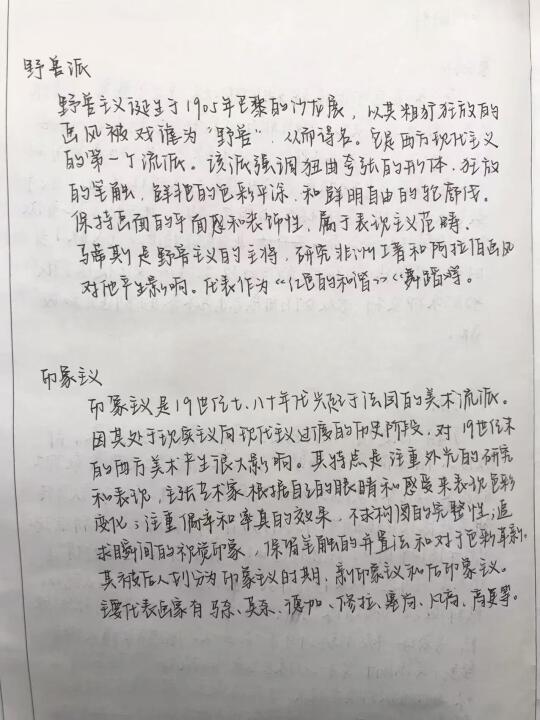 野兽派
野兽主义诞生于1905年巴黎的沙龙展，以其粗犷狂放的
画风被戏谑为“野兽”，从而得名。它是西方现代主义
的第一个流派。该派强调扭曲夸张的形体，狂放
的笔触，鲜艳的色彩平涂，和鲜明自由的轮廓线。
保持画面的平面感和装饰性，属于表现主义范畴。
马蒂斯是野兽主义的主将，研究非洲工署和阿拉伯画风
对他产生影响。代表作为《红色的和谐》《舞蹈》等。
印象主义
印象主义是19世纪七、八十年代兴起于法国的美术流派。
因其处于现实主义向现代主义过渡的历史阶段，对19世纪末
的西方美术产生很大影响。其特点是注重外光的研究
和表现，主张艺术家根据自己的眼睛和感受来表现色彩
变化；注重偶率和率真的效果，不求构图的完整性，追
求瞬间的视觉印象，保留笔触的并置法和对于色彩革新。
其被后人划分为印象主义时期、新印象主义和后印象主义。
主要代表画家有马奈、莫奈、德加、修拉、塞尚、凡高、高更等。